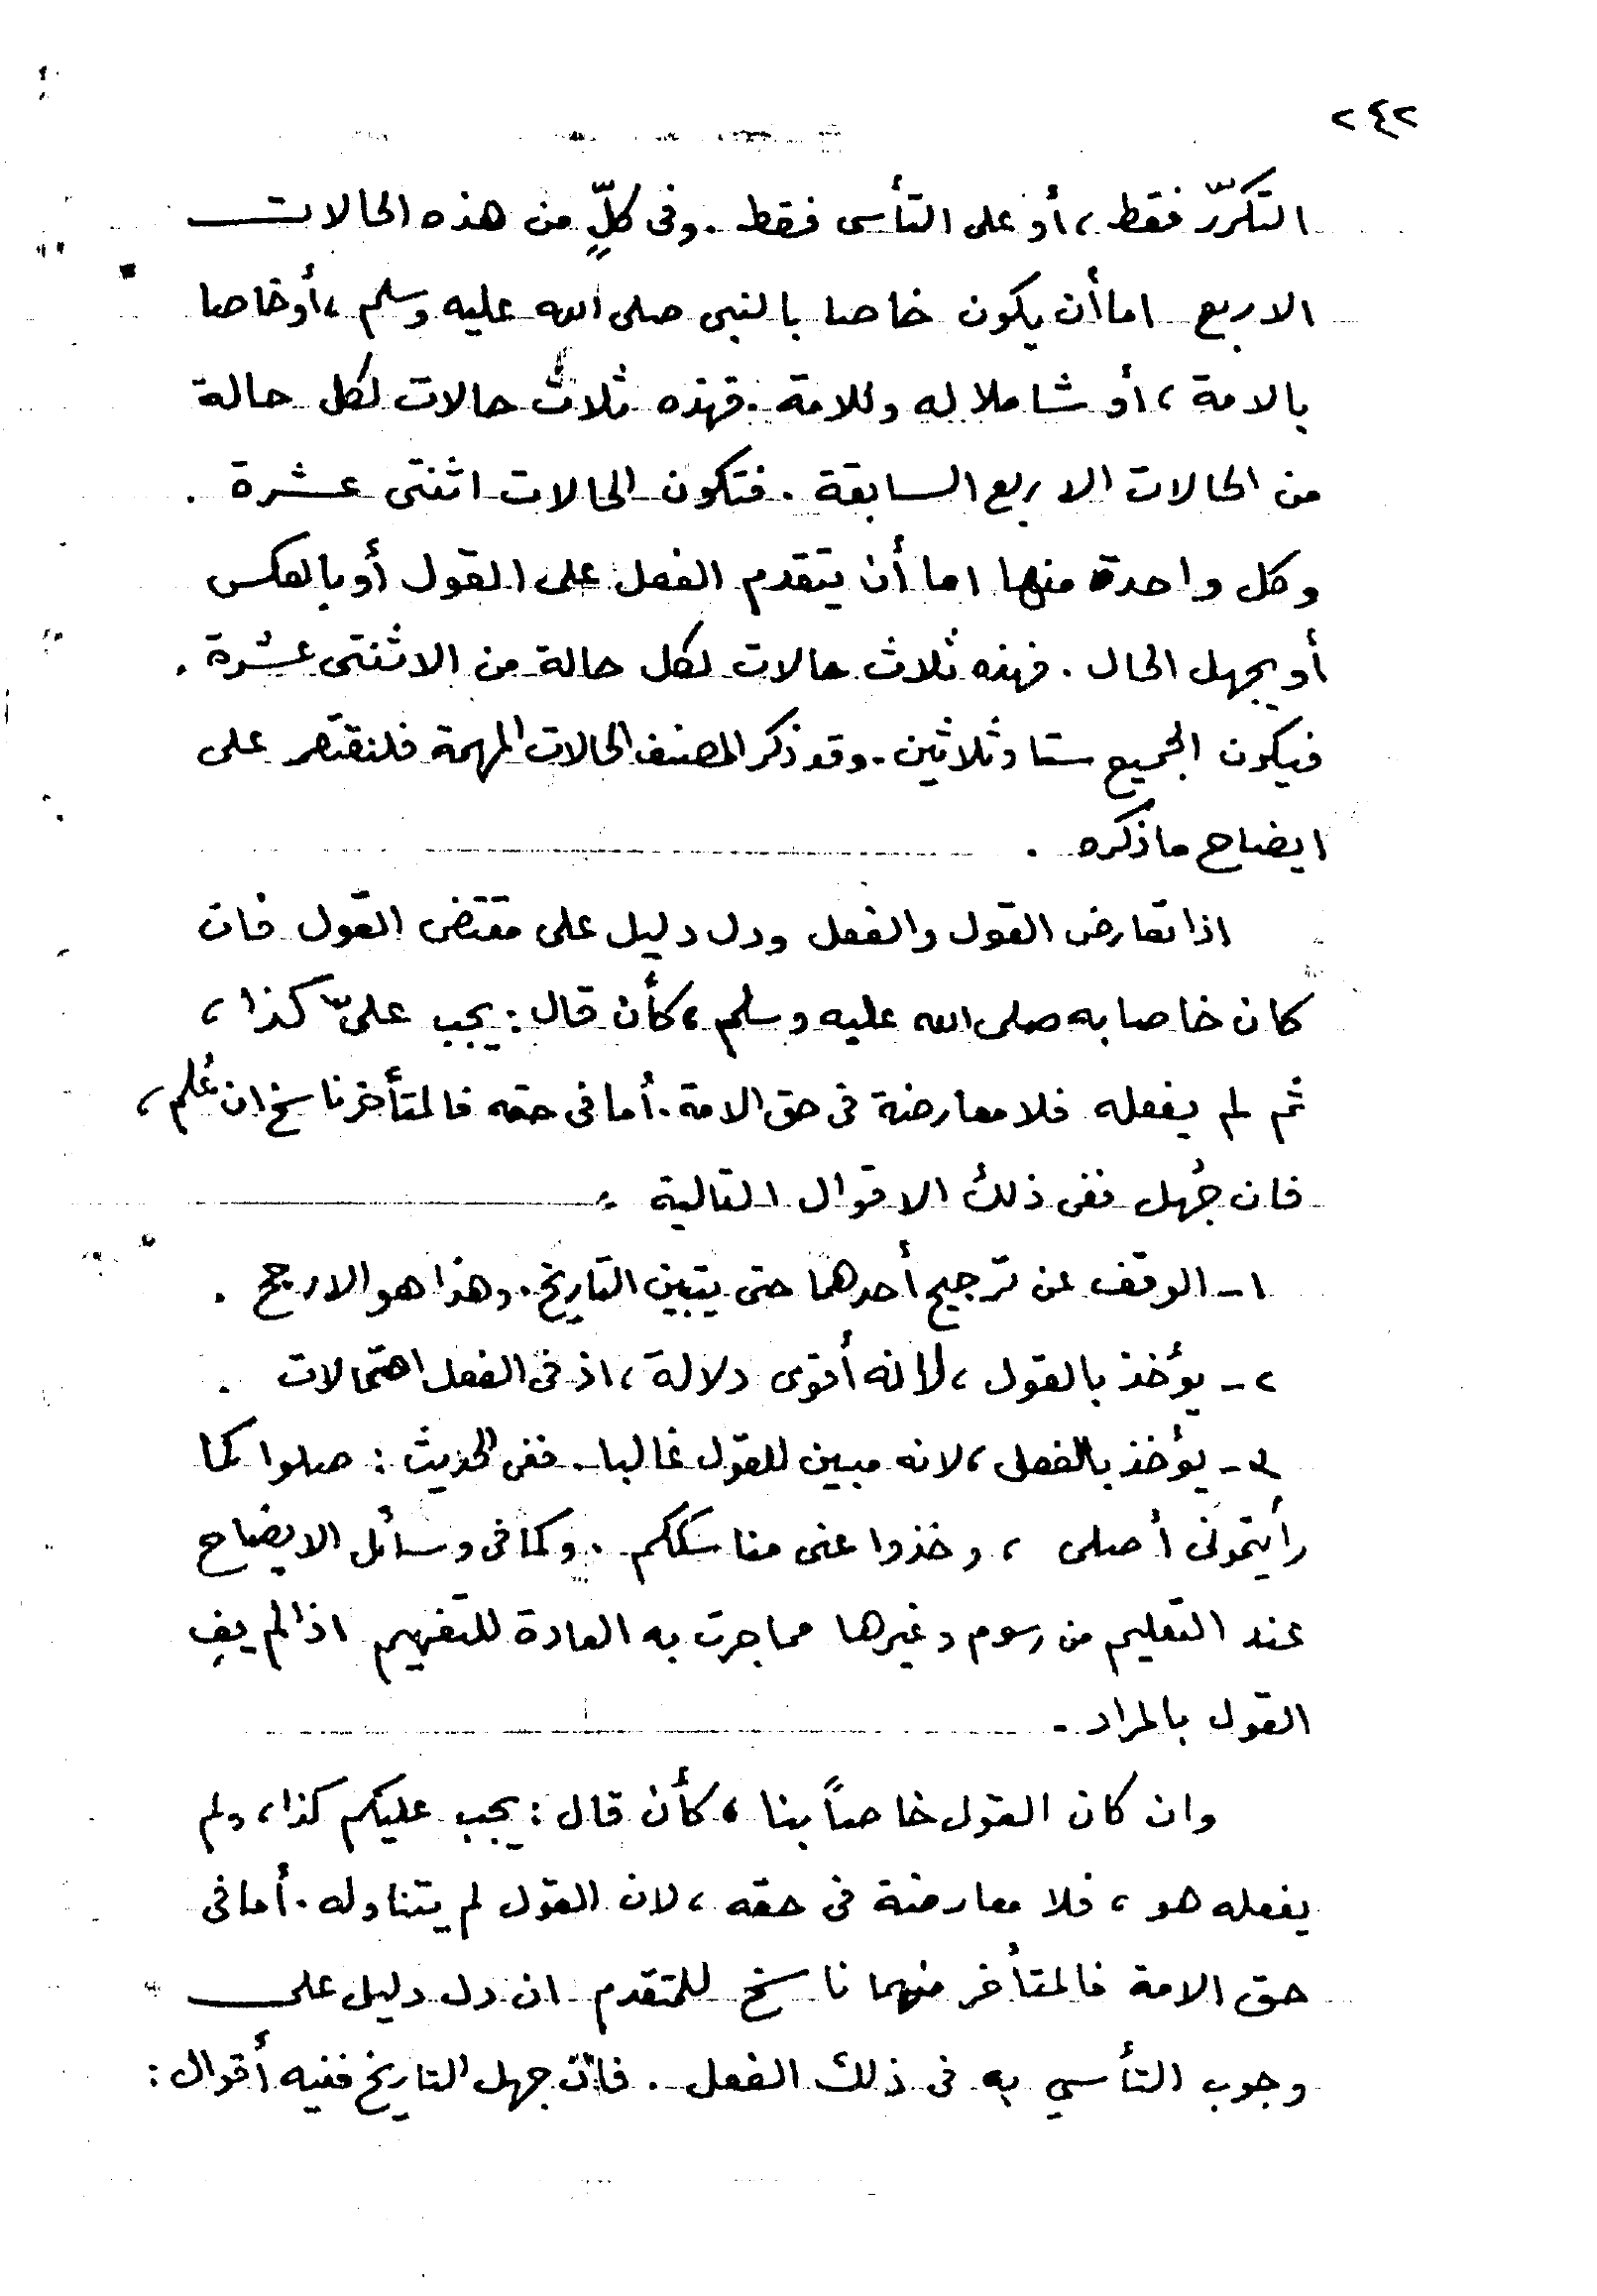 ٢٤٢
التكرّر فقط ، أو على التأسى فقط . وفى كلٍّ من هذه الحالات
الاربع اما أن يكون خاصا بالنبى صلى الله عليه وسلم ، أو خاصا
بالامة ، أو شاملا له وللامة . فهذه ثلاث حالات لكل حالة
من الحالات الاربع السابقة . فتكون الحالات اثنتى عشرة .
وكل واحدة منها اما أن يتقدم الفعل على القول أو بالعكس
أو يجهل الحال . فهذه ثلاث حالات لكل حالة من الاثنتى عشرة .
فيكون الجميع ستا وثلاثين . وقد ذكر المصنف الحالات المهمة فلنقتصر على
ايضاح ما ذكره .
اذا تعارض القول والفعل ودل دليل على مقتضى القول فان
كان خاصا به صلى الله عليه وسلم ، كأن قال : يجب علىّ كذا ،
ثم لم يفعله فلا معارضة فى حق الامة . أما فى حقه فالمتأخر ناسخ ان عُلم ،
فان جُهل ففى ذلك الاقوال التالية :
١ - الوقف عن ترجيح أحدهما حتى يتبين التاريخ . وهذا هو الارجح .
٢ - يؤخذ بالقول ، لانه أقوى دلالة ، اذ فى الفعل احتمالات .
٣ - يؤخذ بالفعل ، لانه مبين للقول غالبا . ففى الحديث : صلوا كما
رأيتمونى أصلى ، وخذوا عنى مناسككم . وكما فى وسائل الايضاح
عند التعليم من رسوم وغيرها مما جرت به العادة للتفهيم اذا لم يفِ
القول بالمراد .
وان كان القول خاصاً بنا ، كأن قال : يجب عليكم كذا ، ولم
يفعله هو ، فلا معارضة فى حقه ، لان القول لم يتناوله . أما فى
حق الامة فالمتأخر منهما ناسخ للمتقدم ان دل دليل على
وجوب التأسي به فى ذلك الفعل . فان جهل التاريخ ففيه أقوال :